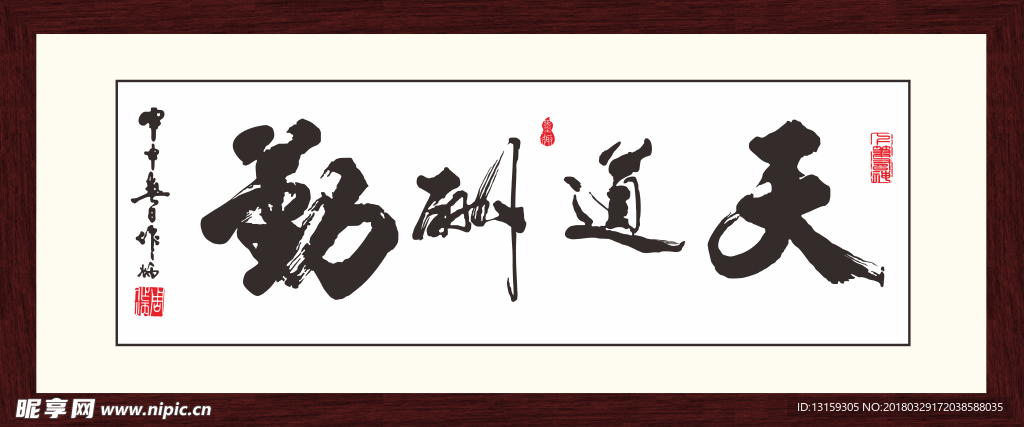 天道酬勤
甲申春日作炳
昵享网 www.nipic.cn
ID:13159305 NO:20180329172038588035